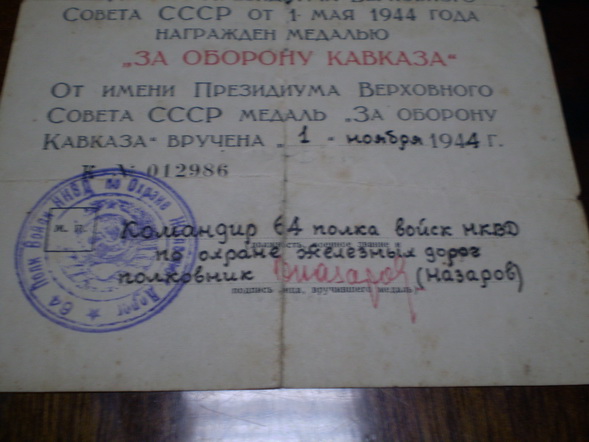 Совета СССР от 1 мая 1944 года
награжден медалью
„ЗА ОБОРОНУ КАВКАЗА“
От имени Президиума Верховного
Совета СССР медаль „За оборону
Кавказа“ вручена „1 - ноября 1944 г.
К № 012986
М. П.
Командир 64 полка войск НКВД
по охране железных дорог
полковник Назаров (Назаров)
подпись лица, вручившего медаль
64 Полк Войск НКВД по Охране Дорог